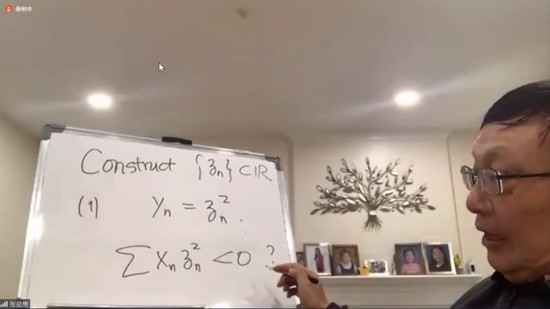 录制中
Construct {z_n} ⊂ ℝ
(1) y_n = z_n^2.
∑ x_n z_n^2 < 0 ?